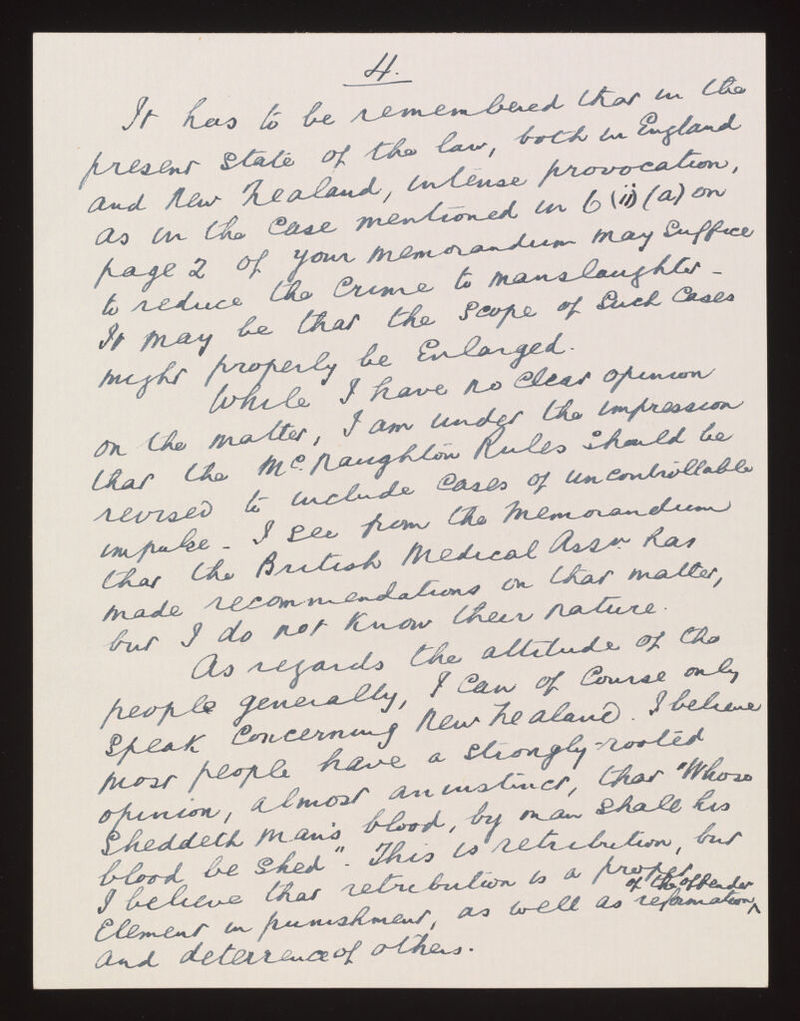 4.
It has to be remembered that in the
present state of the law, both in England
and New Zealand, intense provocation,
as in the case mentioned in 6 (ii) (a) on
page 2 of your memorandum may suffice
to reduce the crime to manslaughter -
It may be that the scope of such cases
might properly be enlarged.
While I have no clear opinion
on the matter, I am under the impression
that the McNaughton Rules should be
revised to include cases of uncontrollable
impulse - I see from the memorandum
that the British Medical Assn has
made recommendations on that matter,
but I do not know their nature.
As regards the attitude of the
people generally, I can of course only
speak concerning New Zealand. I believe
most people have a strongly-rooted
opinion, almost an instinct, that "Whoso
sheddeth man's blood, by man shall his
blood be shed". This is retribution, but
I believe that retribution is a proper
element in punishment, as well as reformation ^ of the offender
and deterrence of others.